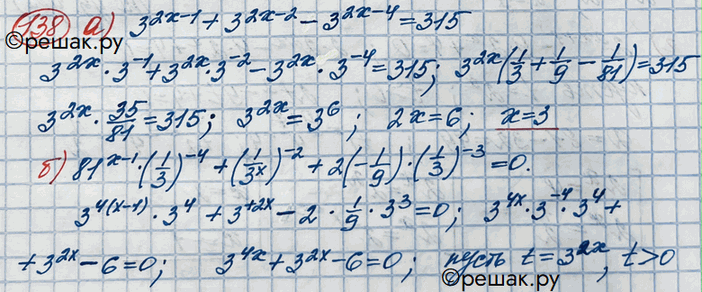 138 а) 3^{2x-1} + 3^{2x-2} - 3^{2x-4} = 315
©решак.ру
3^{2x} · 3^{-1} + 3^{2x} · 3^{-2} - 3^{2x} · 3^{-4} = 315; 3^{2x}(1/3 + 1/9 - 1/81) = 315
3^{2x} · 35/81 = 315; 3^{2x} = 3^6; 2x = 6; x = 3
б) 81^{x-1} · (1/3)^{-4} + (1/3^x)^{-2} + 2(-1/9) · (1/3)^{-3} = 0.
3^{4(x-1)} · 3^4 + 3^{+2x} - 2 · 1/9 · 3^3 = 0; 3^{4x} · 3^{-4} · 3^4 +
+ 3^{2x} - 6 = 0; 3^{4x} + 3^{2x} - 6 = 0; пусть t = 3^{2x}, t > 0
©решак.ру